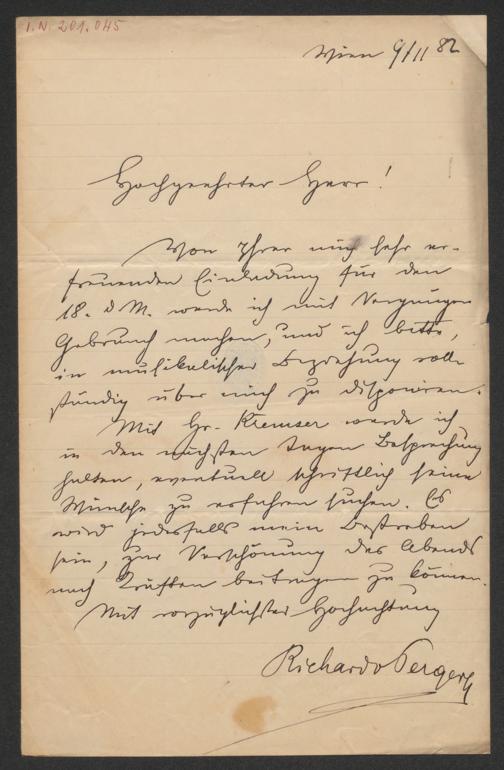 I.N. 201.045
Wien 9/11 82
Hochgeehrter Herr!
Von Ihrer mich sehr er-
freuenden Einladung für den
18. d M. werde ich mit Vergnügen
Gebrauch machen, und ich bitte,
in musikalischer Beziehung voll-
ständig über mich zu disponiren.
Mit Hr. Kremser werde ich
in den nächsten Tagen Besprechung
halten, eventuell schriftlich seine
Wünsche zu erfahren suchen. Es
wird jedesfalls mein Bestreben
sein, zur Verschönung des Abends
nach Kräften beitragen zu können.
Mit vorzüglichster Hochachtung
Richard v Perger